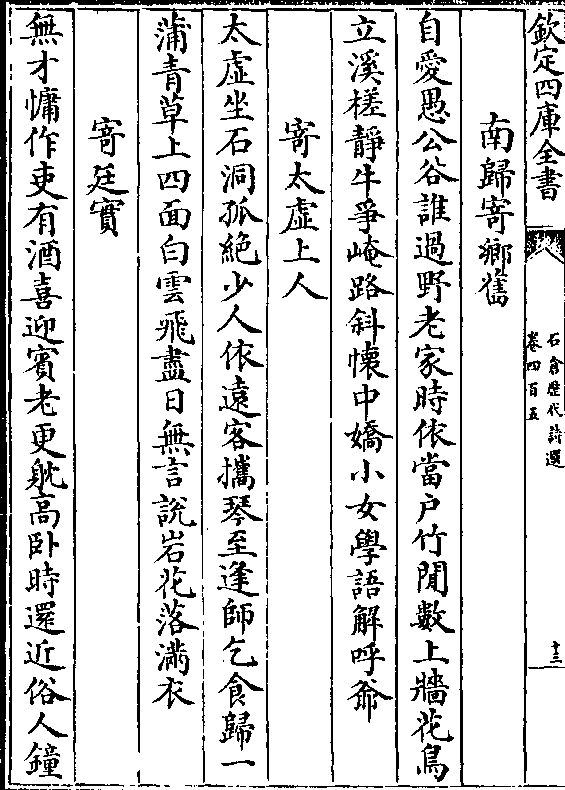 欽定四庫全書
石倉歴代詩選
卷四百五
十三
南歸寄鄉舊
自愛愚公谷誰過野老家時依當户竹閒數上牆花鳥
立溪槎靜牛爭崦路斜懐中嬌小女學語解呼爺
寄太虛上人
太虛坐石洞孤絶少人依遠客攜琴至逢師乞食歸一
蒲青草上四面白雲飛盡日無言說岩花落滿衣
寄廷實
無才慵作吏有酒喜迎賓老更躭高卧時還近俗人鐘